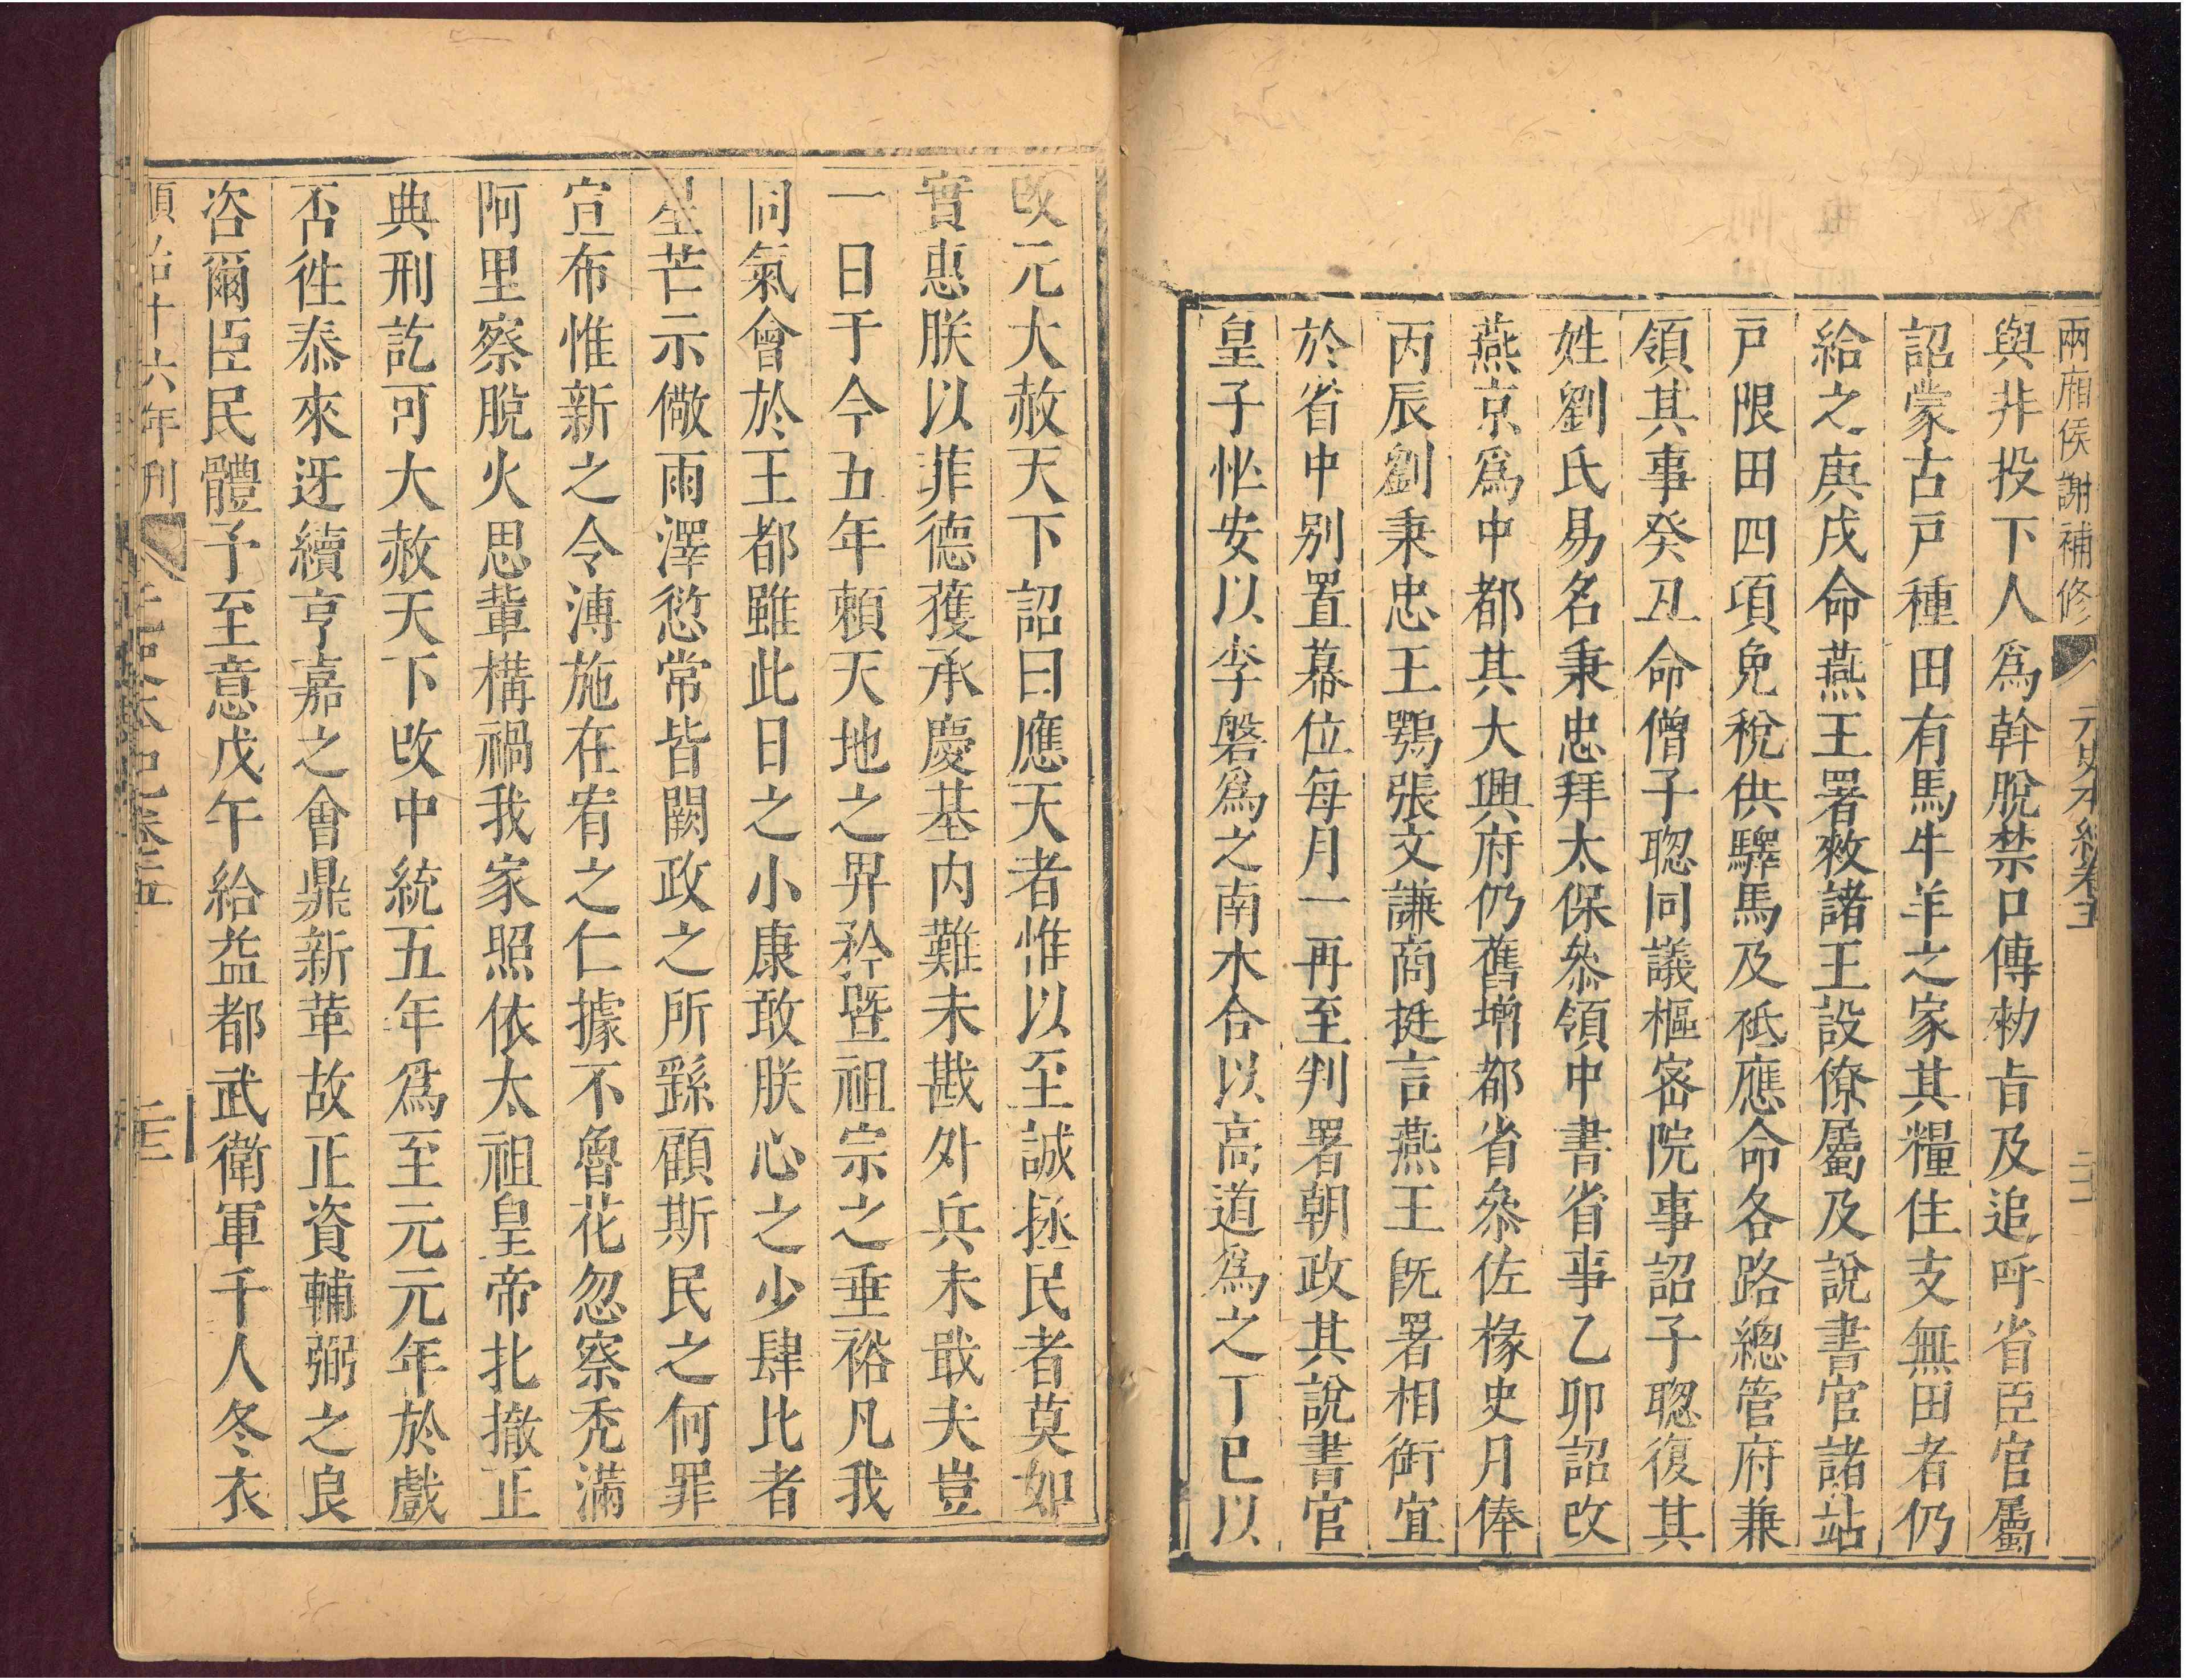 兩廂侯謝補修 元史本紀卷五 二十二
與非投下人爲幹脫禁口傳勑㫖及追呼省臣官屬
詔蒙古戸種田有馬牛羊之家其糧住支無田者仍
給之庚戌命燕王署敕諸王設僚屬及說書官諸站
戸限田四項免稅供驛馬及祗應命各路總管府兼
領其事癸丑命僧子聰同議樞密院事詔子聰復其
姓劉氏易名秉忠拜太保叅領中書省事乙卯詔改
燕京爲中都其大興府仍舊增都省叅佐椽史月俸
丙辰劉秉忠王鶚張文謙商挺言燕王旣署相銜宜
於省中别置幕位每月一再至判署朝政其說書官
皇子忙安以李磐爲之南木合以高道爲之丁巳以
改元大赦天下詔曰應天者惟以至誠拯民者莫如
實惠朕以菲德獲承慶基内難未戡外兵未戢夫豈
一日于今五年賴天地之畀矜曁祖宗之垂裕凡我
同氣會於王都雖此日之小康敢朕心之少肆比者
星芒示儆雨澤愆常皆闕政之所繇顧斯民之何罪
宣布惟新之令溥施在宥之仁據不魯花忽察禿滿
阿里察脫火思輩構禍我家照依太祖皇帝扎撤正
典刑訖可大赦天下改中統五年爲至元元年於戲
否徃泰來迓續亨嘉之會鼎新革故正資輔弼之良
咨爾臣民體予至意戊午給益都武衛軍千人冬衣
順治十六年刊 元史本紀卷之五 二十三